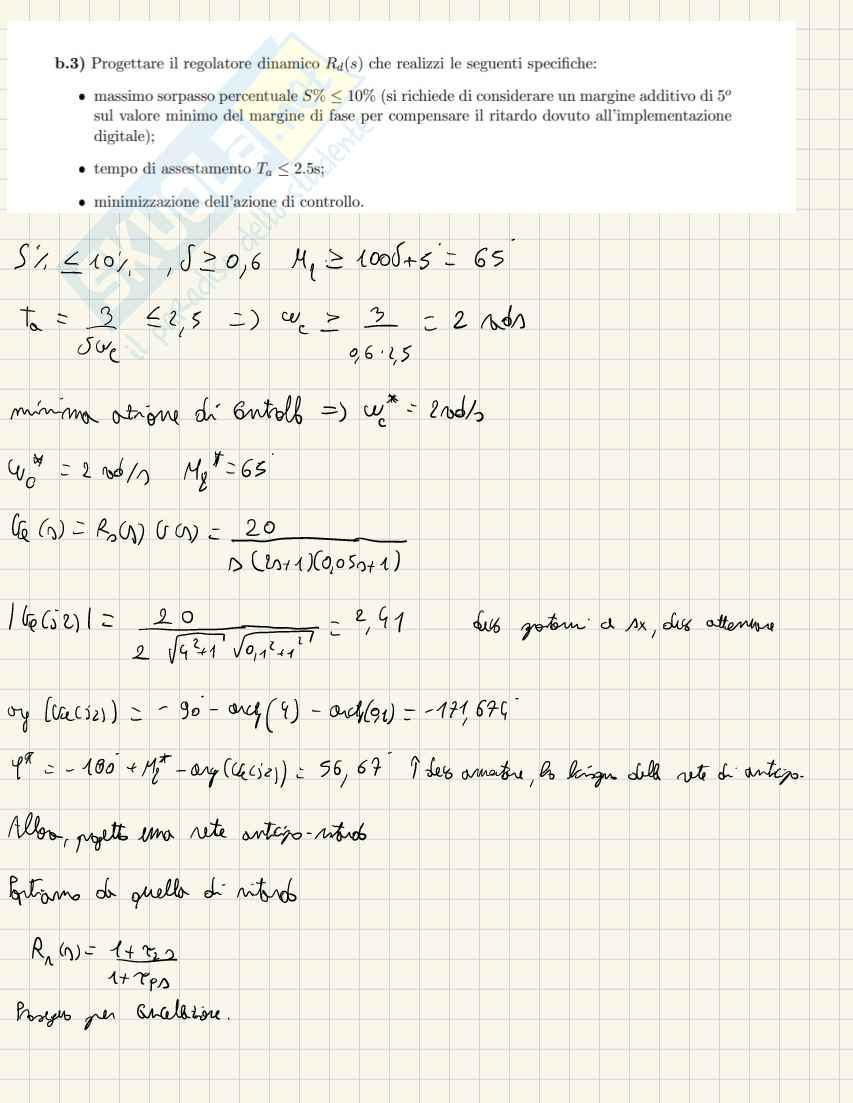 b.3) Progettare il regolatore dinamico R_d(s) che realizzi le seguenti specifiche:
• massimo sorpasso percentuale S% ≤ 10% (si richiede di considerare un margine additivo di 5°
sul valore minimo del margine di fase per compensare il ritardo dovuto all'implementazione
digitale);
• tempo di assestamento T_a ≤ 2.5s;
• minimizzazione dell'azione di controllo.
S% ≤ 10%, δ ≥ 0,6 M_f ≥ 100δ+5° = 65°
T_a = 3/(δω_c) ≤ 2,5 => ω_c ≥ 3/(0,6·2,5) = 2 rad/s
minima azione di controllo => ω_c* = 2 rad/s
ω_0* = 2 rad/s M_f* = 65°
G_e(s) = R_s(s) G(s) = 20/(s(2s+1)(0,05s+1))
|G_e(j2)| = 20/(2 √(4²+1) √(0,1²+1²)) = 2,41 devo a sx, devo attenuare
arg(G_e(j2)) = -90° - arctg(4) - arctg(0,1) = -171,674°
φ* = -180° + M_f* - arg(G_e(j2)) = 56,67° ↑ devo, ho bisogno della rete di anticipo.
Allora, progetto una rete anticipo-ritardo
Partiamo da quella di ritardo
R_r(s) = (1+τ_z s)/(1+τ_p s)
per cancellazione.
SKUOLA.net
il paradiso dello studente